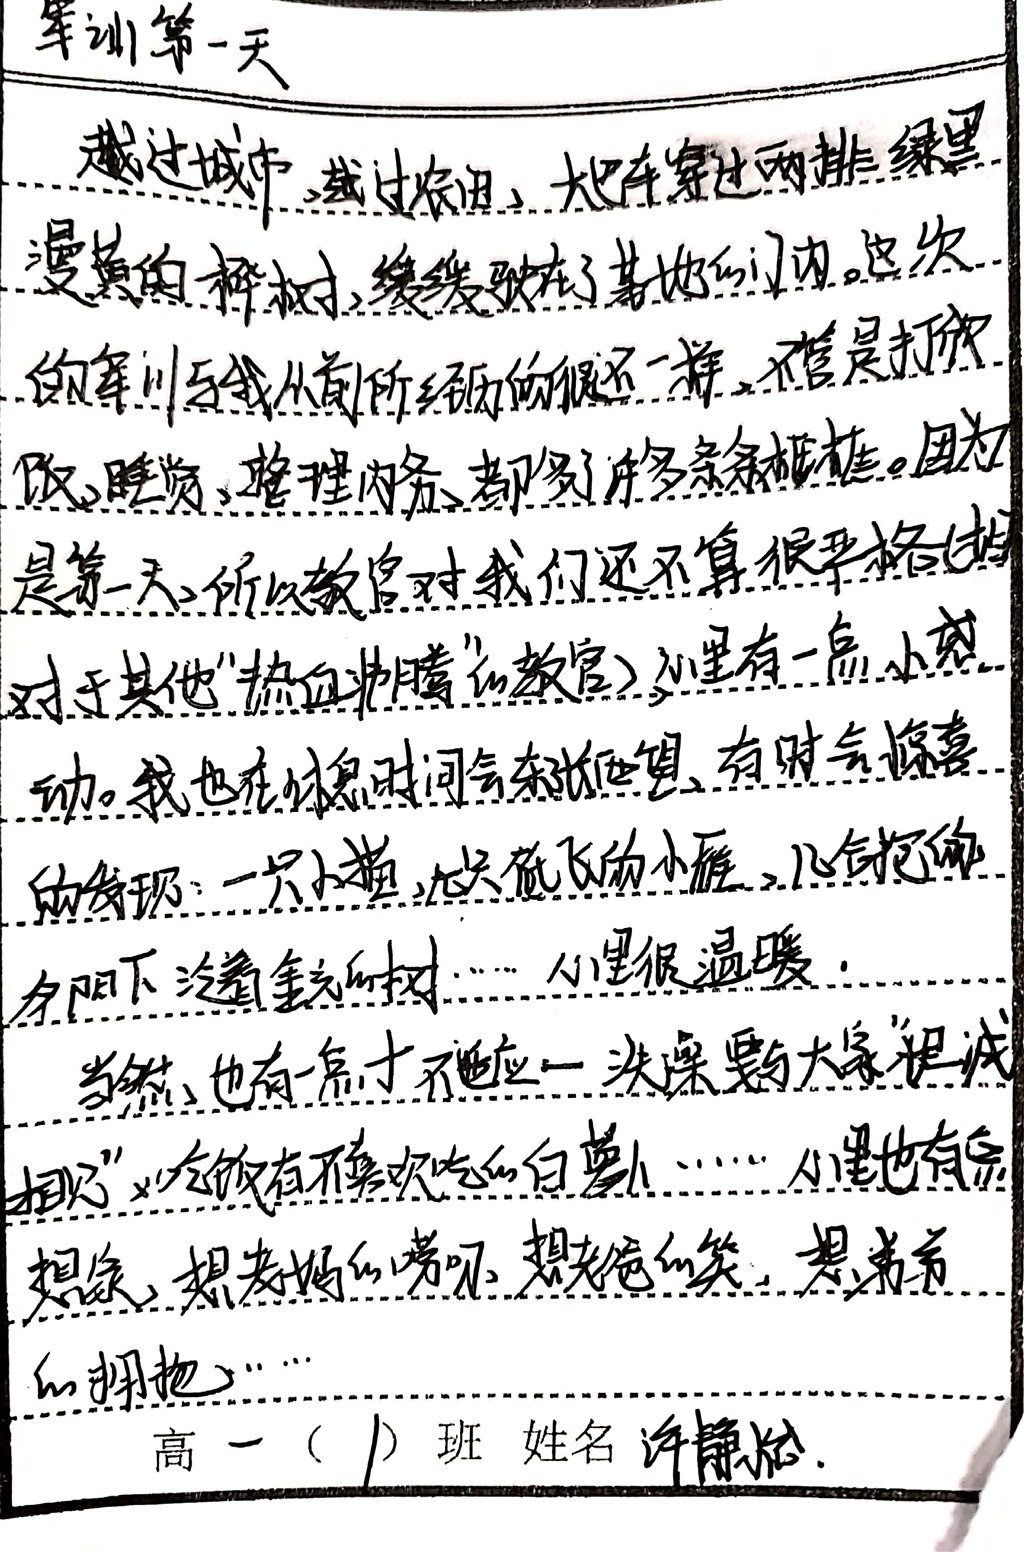 军训第一天
越过城市，越过农田，大巴车穿过两排绿里
漫黄的桦树，缓缓驶在了基地的门内。这次
的军训与我从前所经历的很不一样，不管是打饭
、睡觉、整理内务，都多了许多条条框框。因为
是第一天，所以教官对我们还不算很严格（相
对于其他“热血沸腾”的教官），心里有一点小感
动。我也在休息时间会东张西望，有时会惊喜
的发现：一只小猫，几只低飞的小雁，几台拖
夕阳下泛着金光的树……心里很温暖.
当然，也有一点才不适应——洗澡要与大家“坦诚
相见”，吃饭有不喜欢吃的白萝卜……心里也有点
想家，想老妈的唠叨，想老爸的笑，想弟弟
的拥抱……
高一（1）班 姓名 许静